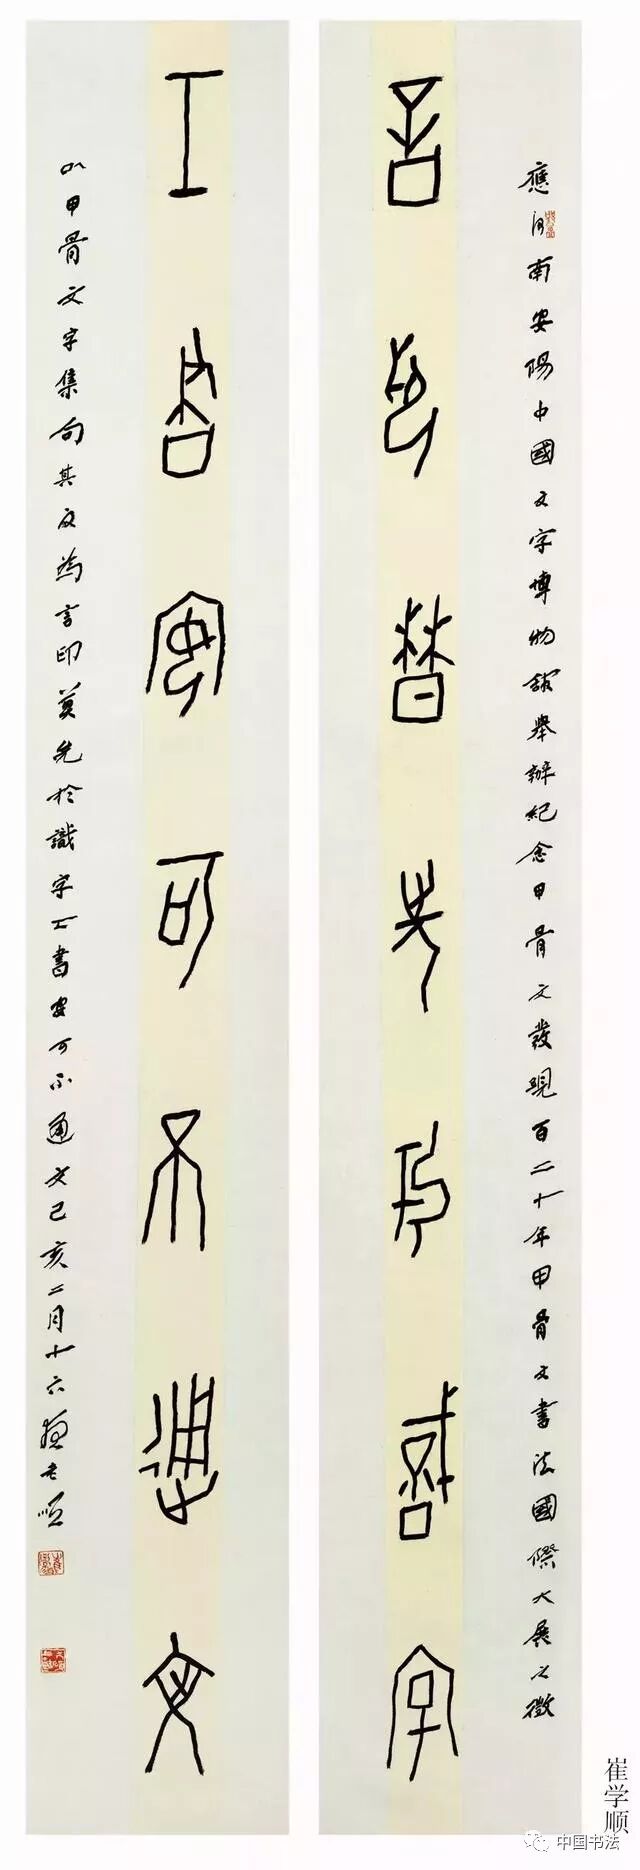 應河南安陽中國文字博物館舉辦紀念甲骨文發現百二十年甲骨文書法國際大展之徵
言印莫先於識字
工書安可不通文
以甲骨文字集句其文為言印莫先於識字工書安可不通文己亥二月十六崔學順
崔学顺
中国书法